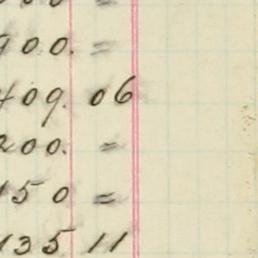 00 =
900. =
409. 06
200. =
150 =
135 11